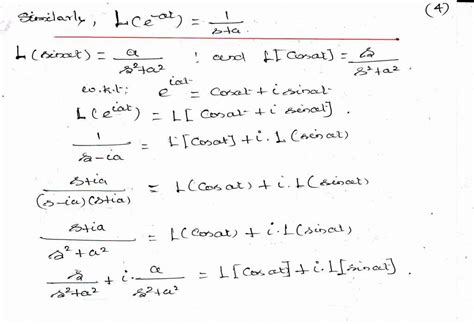 (4)
Similarly, L(e^-at) = 1/(s+a).
L(sinat) = a/(s²+a²) ; and L[Cosat] = s/(s²+a²).
w.k.t: e^iat = Cosat + i sinat
L(e^iat) = L[Cosat + i sinat].
1/(s-ia) = L[Cosat] + i. L(sinat)
(s+ia)/((s-ia)(s+ia)) = L(Cosat) + i. L(sinat)
(s+ia)/(s²+a²) = L(Cosat) + i. L(sinat)
s/(s²+a²) + i. a/(s²+a²) = L[Cosat] + i. L[sinat].